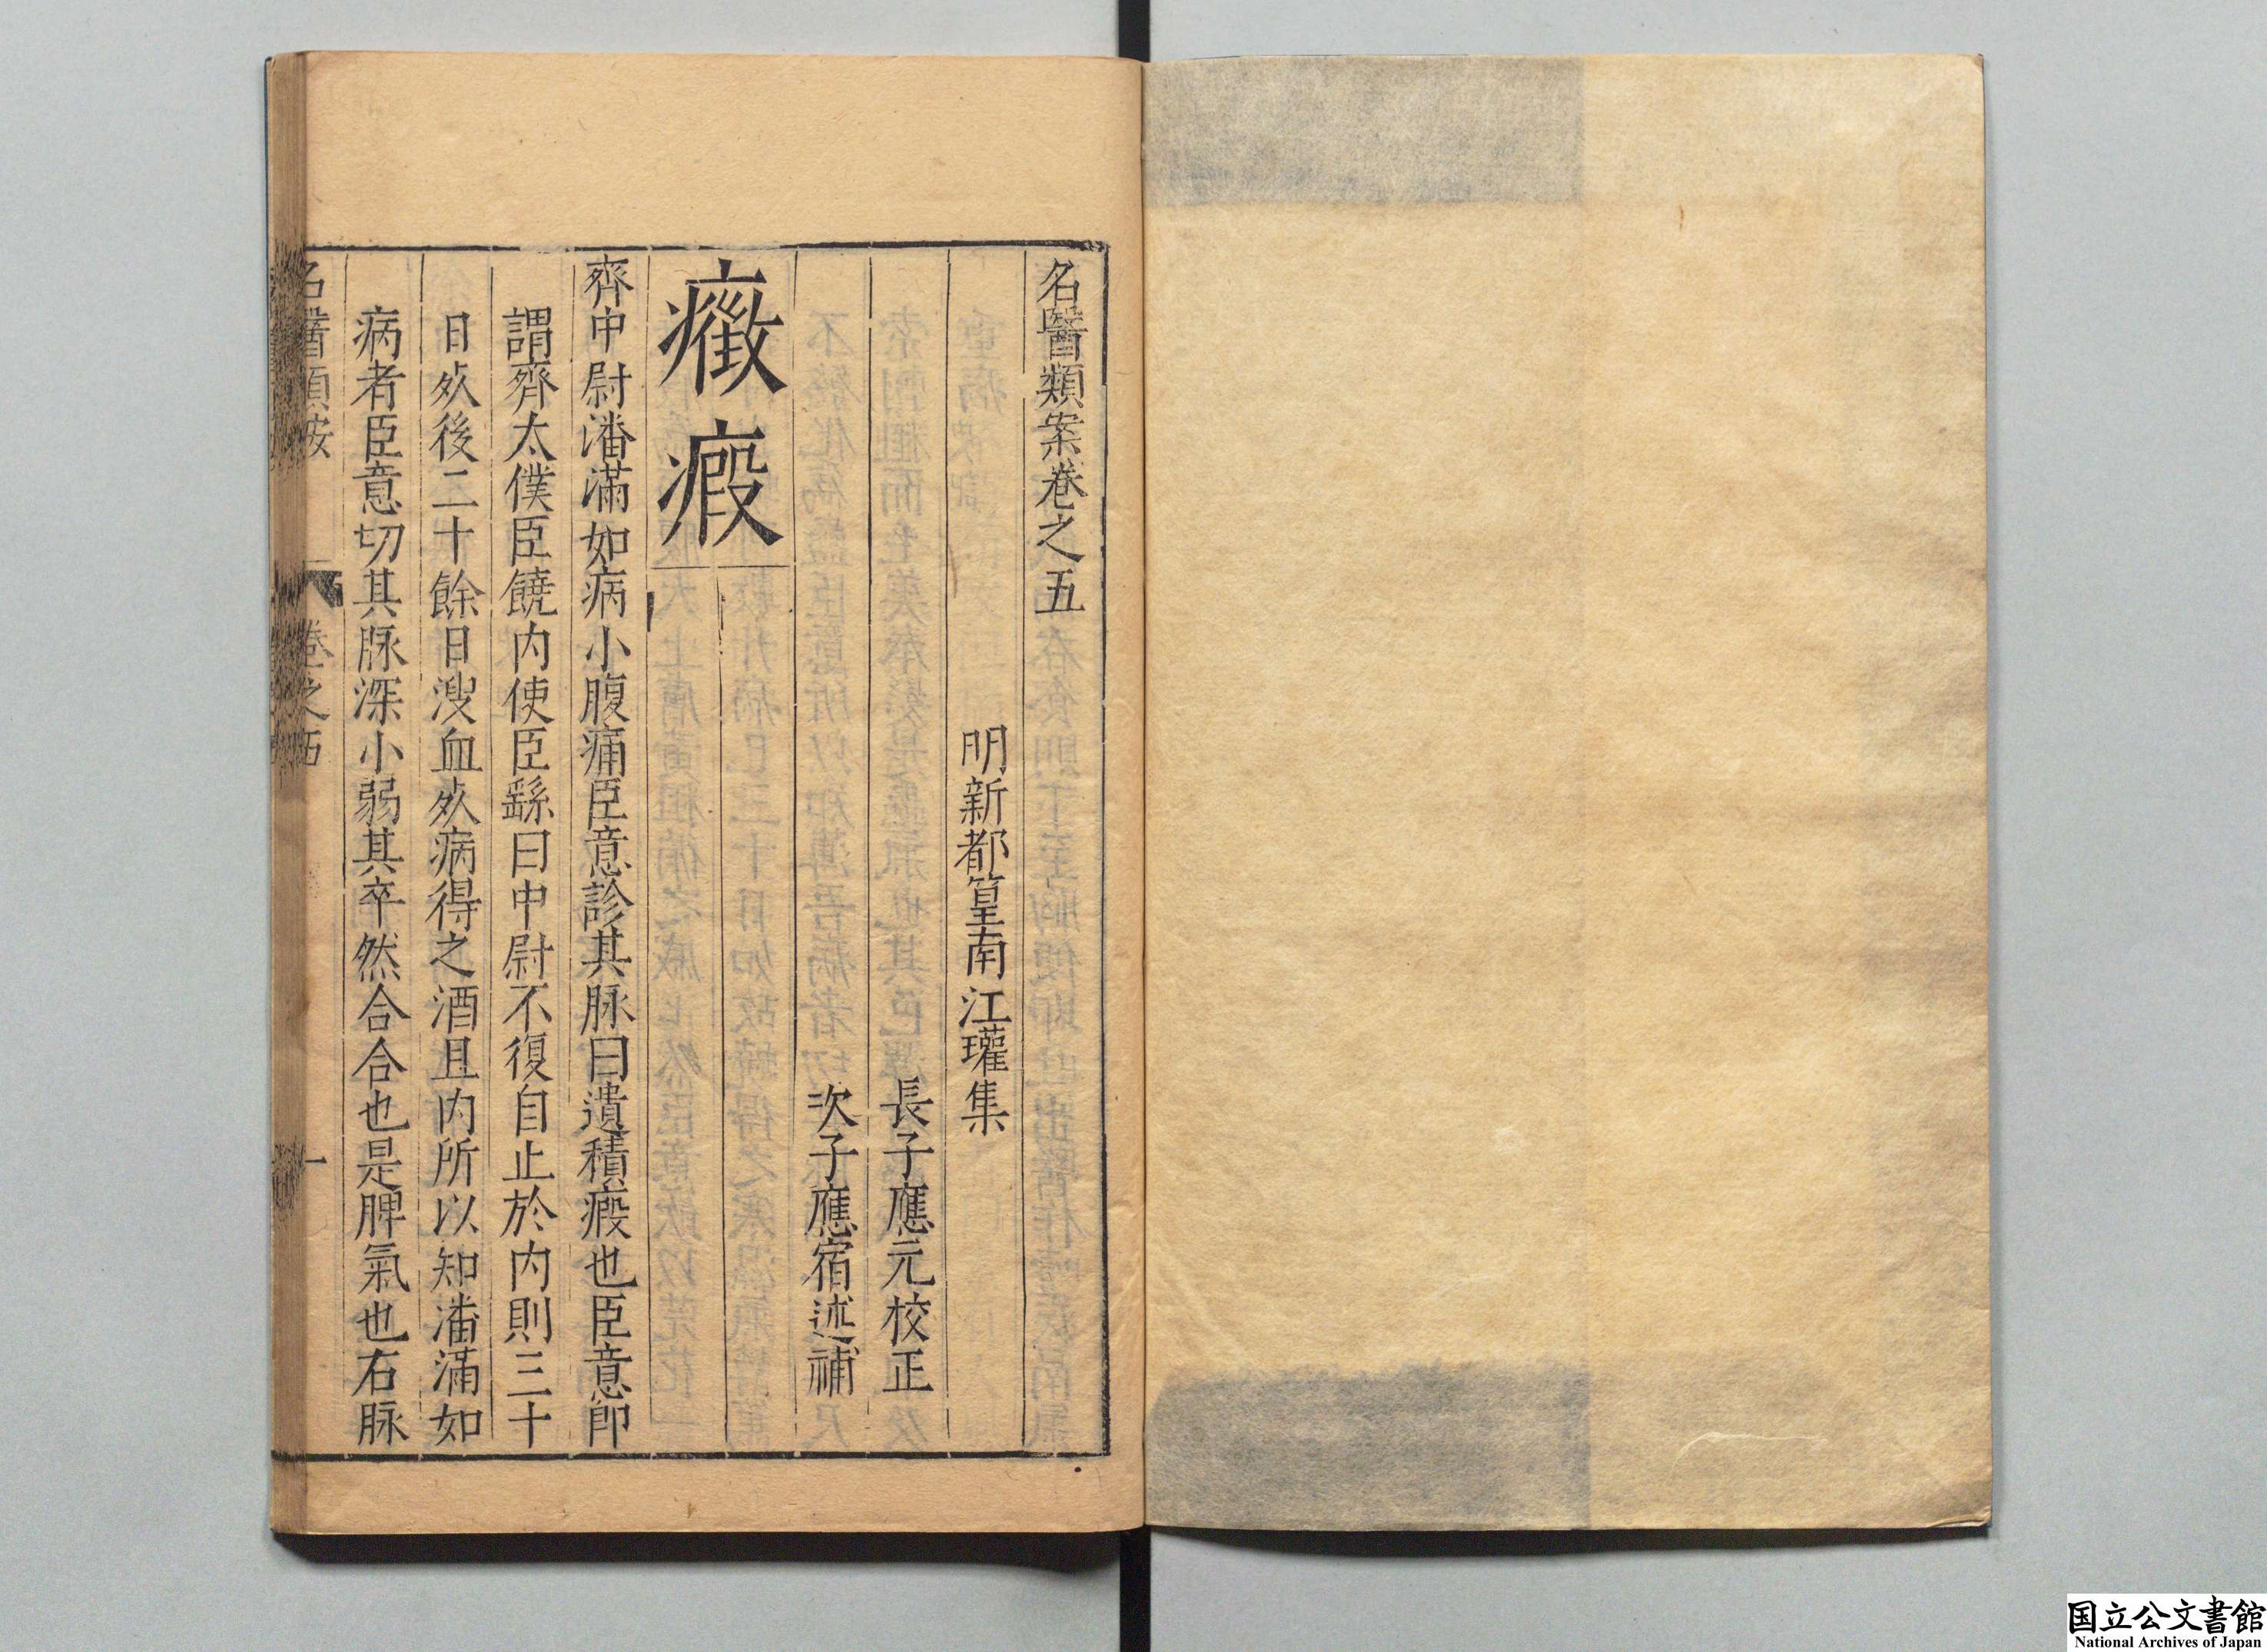 名醫類案卷之五
明新都篁南江瓘集
長子應元校正
次子應宿述補
癥瘕
齊中尉潘滿如病小腹痛臣意診其脉曰遺積瘕也臣意即
謂齊太僕臣饒内使臣繇曰中尉不復自止於内則三十
日𣦸後二十餘日溲血𣦸病得之酒且内所以知潘滿如
病者臣意切其脉深小弱其卒然合合也是脾氣也右脉
名醫類按 卷之五 一
国立公文書館
National Archives of Japan